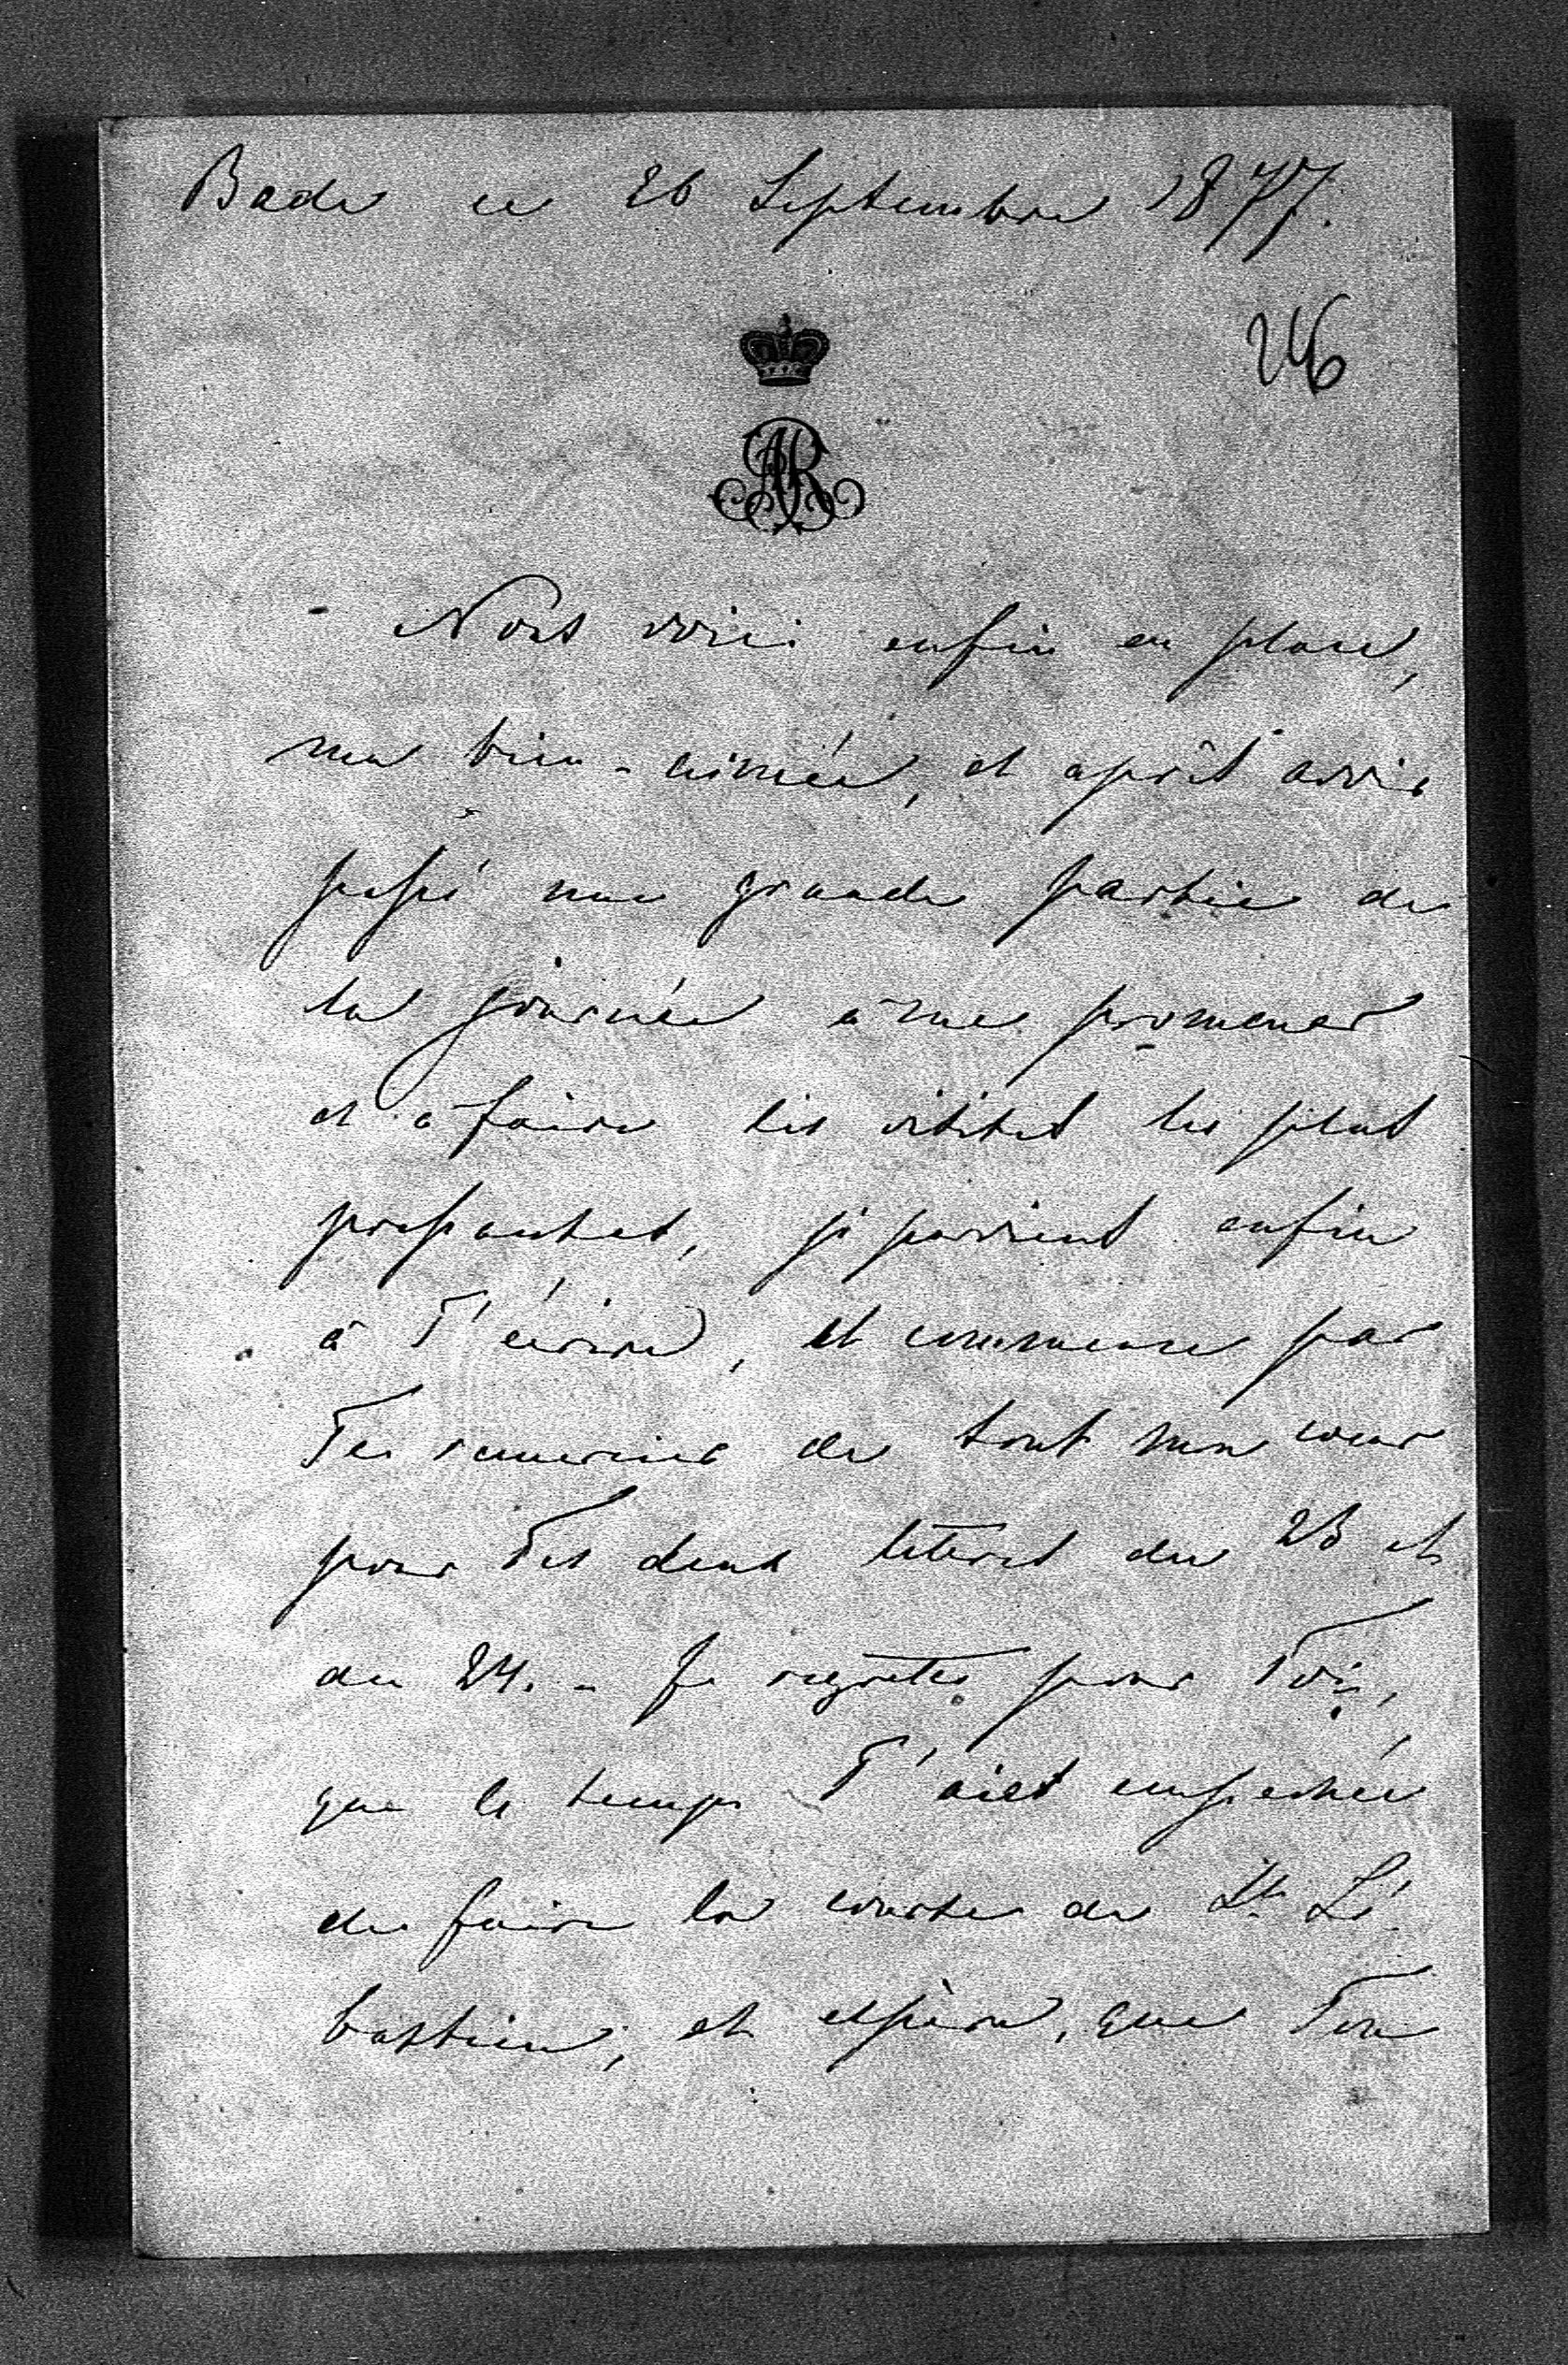 Bade ce 26 Septembre 1877.
246
AR
Nous voici enfin en place,
ma bien-aimée, et après avoir
passé une grande partie de
la journée à me promener
et à faire les visites les plus
pressantes, je parviens enfin
à T'écrire, et commence par
Te remercier de tout mon coeur
pour Tes deux lettres du 23 et
du 24. - Je regrette pour Toi,
que le temps T'aiet empechée
de faire la course de St. Sé
bastien, et espère, que Ton